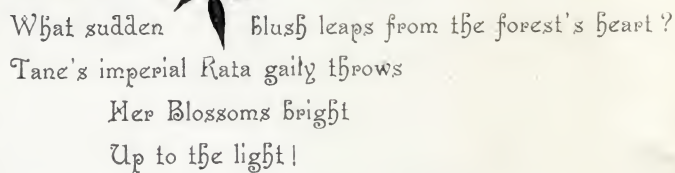 What sudden blush leaps from the forest's heart?
Tane's imperial Rata gaily throws
Her Blossoms bright
Up to the light!